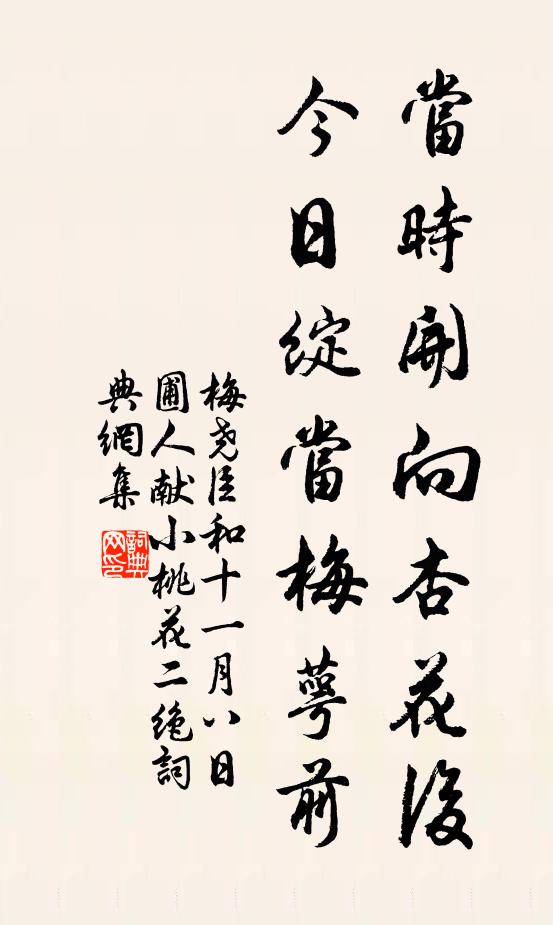 當時開向杏花後
今日綻當梅萼前
梅堯臣和十一月八日
圃人献小桃花二絶詞
典網集
詞典网印